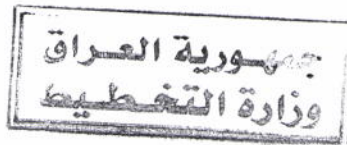 جمهورية العراق
وزارة التخطيط